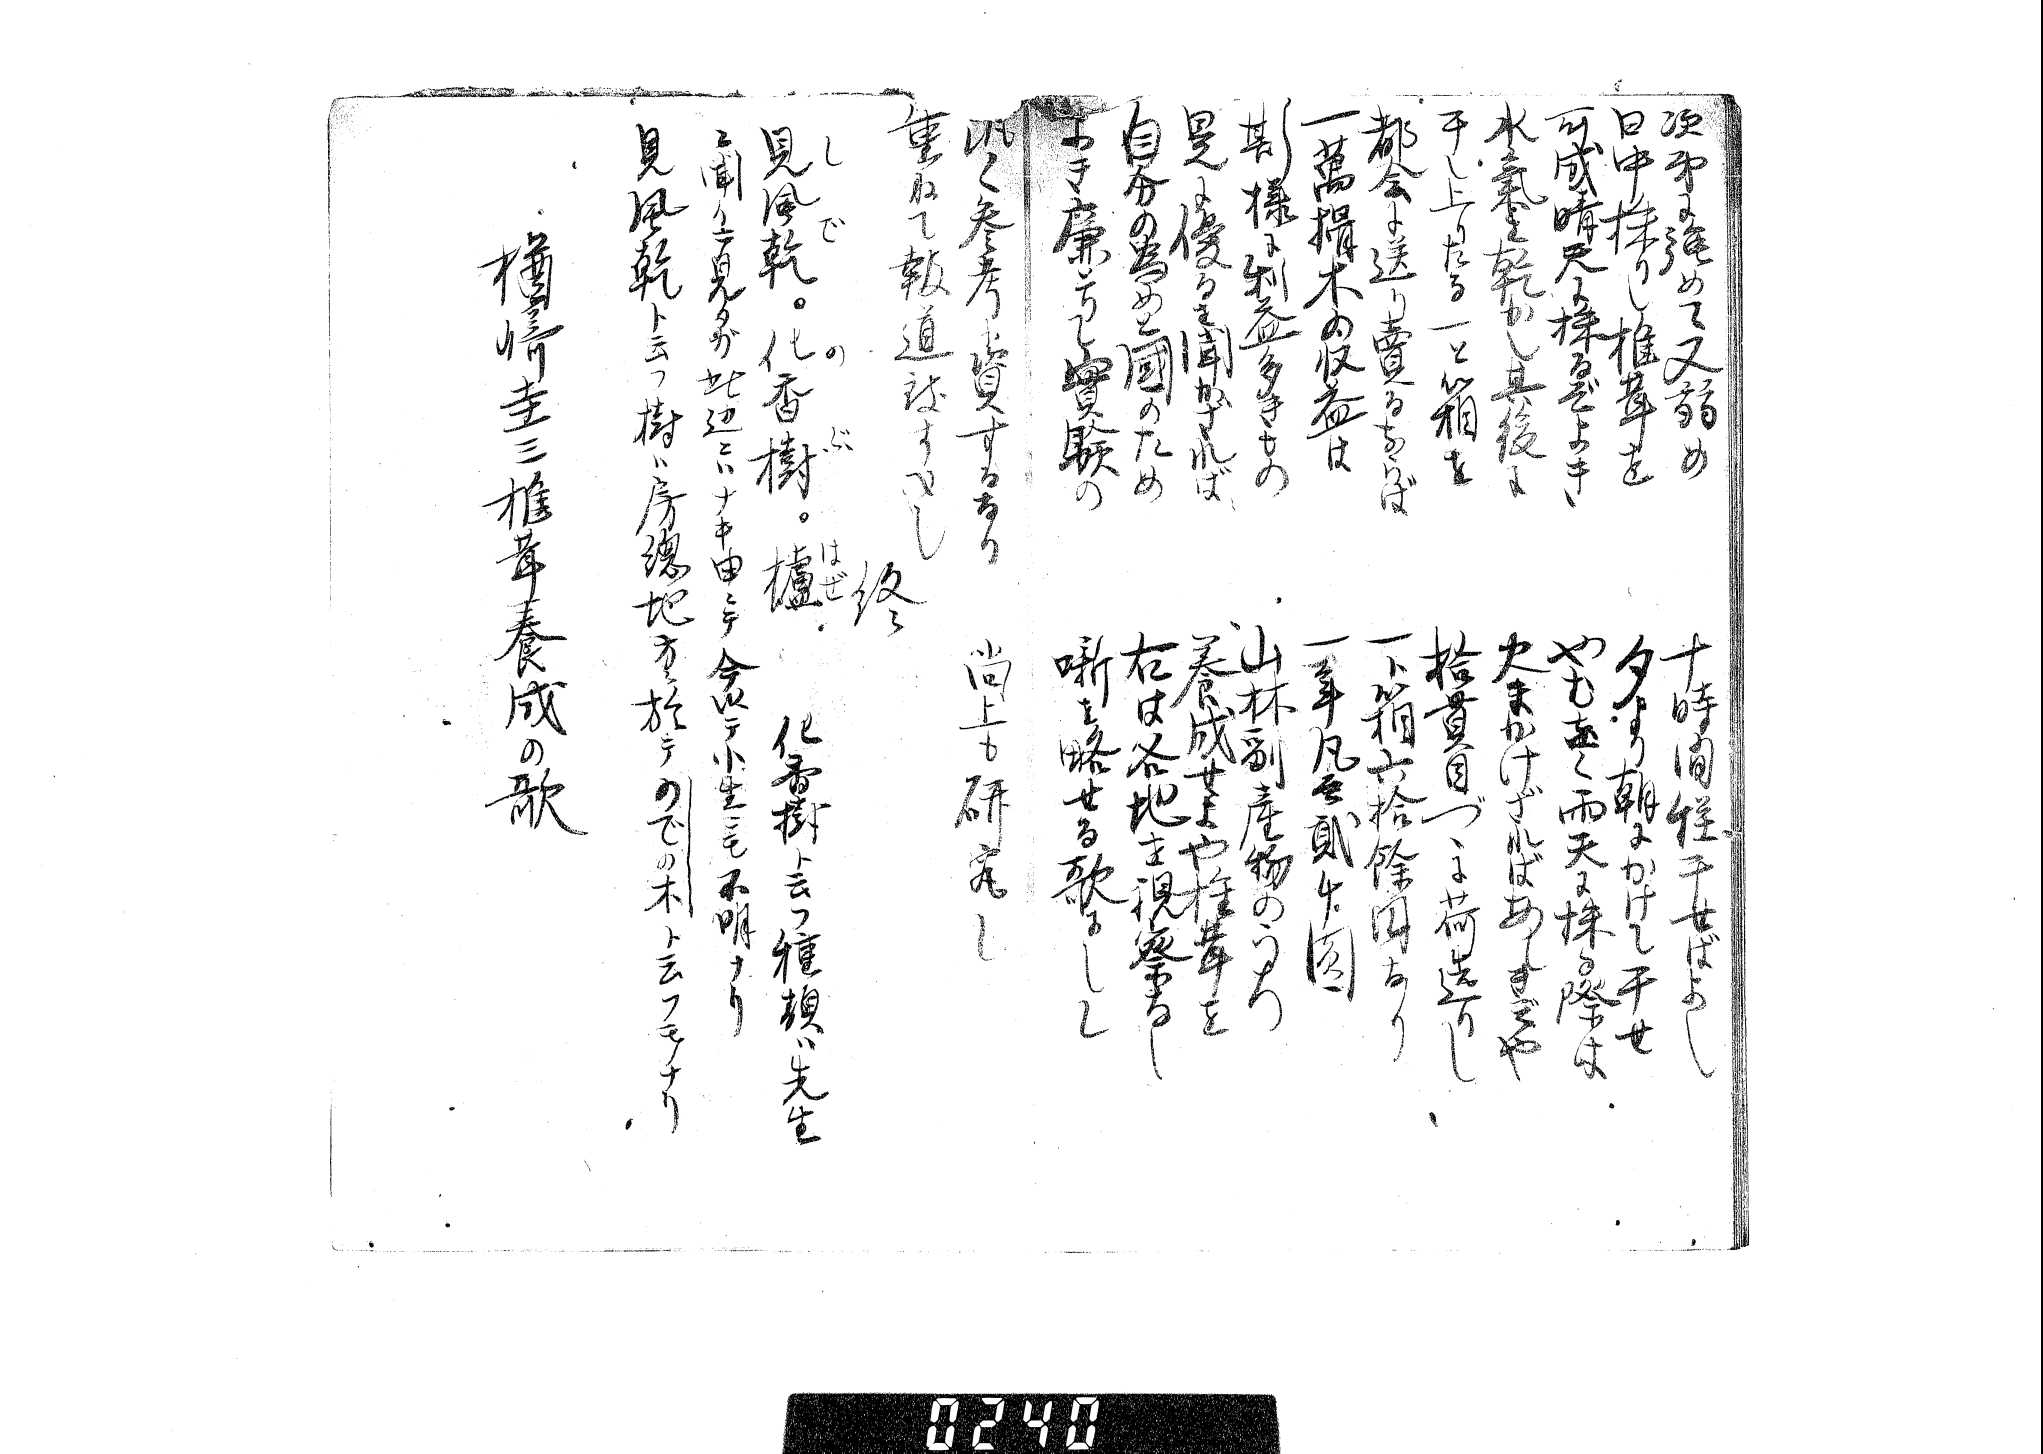 次第に強めて又弱め　十時間程干せばよし
日中採りし椎茸を　夕より朝にかけて干せ
可成晴天に採るぞよき　やむなく雨天に採る際は
水氣を乾かし其後に　火にかけざればあしきぞや
干し上りたる一と箱を　拾貫目づゝに荷造りし
都会に送り賣るならば　一ト箱六拾餘円なり
一萬榾木の収益は　一年凡そ貳千圓
斯様に利益多きもの　山林副産物のうち
是に優るを聞かざれば　養成せよや椎茸を
自分の為めと國のため　右は各地を視察なし
よき廉々と實験の　噺を略せる歌にして
汎く参考に資するなり　尚上も研究し
重ねて報道致すべし
終
しで　のぶ　はぜ
見風乾。化香樹。櫨　化香樹ト云フ種類ハ先生
ニ聞クモ見タガ此辺ニハナキ由ニテ今以テ小生ニモ不明ナリ
見風乾ト云フ樹ハ房總地方ニ於テのでの木ト云フモナリ
楢崎圭三椎茸養成の歌
0240